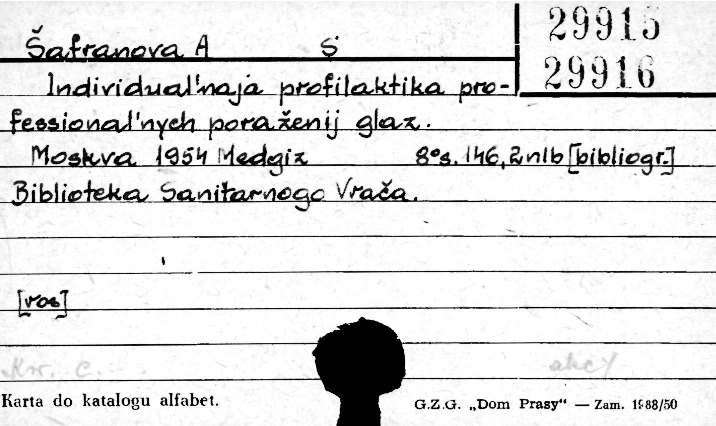 29915
Šafranova A S
29916
Individual'naja profilaktika pro-
fessional'nych poraženij glaz.
Moskva 1954 Medgiz 8°s. 146, 2nlb [bibliogr.]
Biblioteka Sanitarnogo Vrača.
[ros]
Karta do katalogu alfabet.
G.Z.G. „Dom Prasy" — Zam. 1988/50